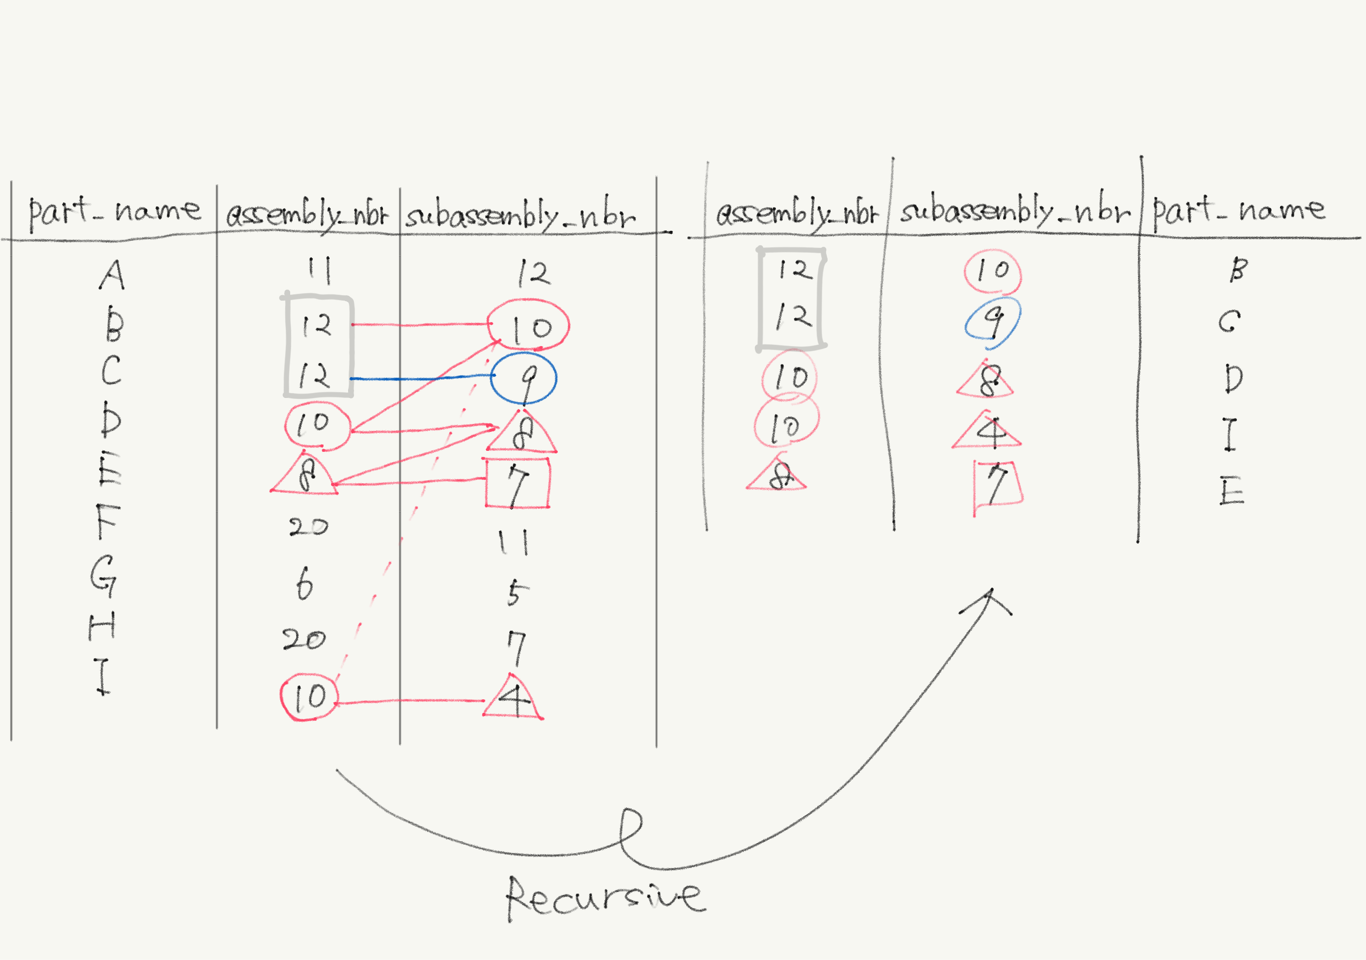 part_name assembly_nbr subassembly_nbr
A 11 12
B 12 10
C 12 9
D 10 8
E 8 7
F 20 11
G 6 5
H 20 7
I 10 4
assembly_nbr subassembly_nbr part_name
12 10 B
12 9 C
10 8 D
10 4 I
8 7 E
Recursive